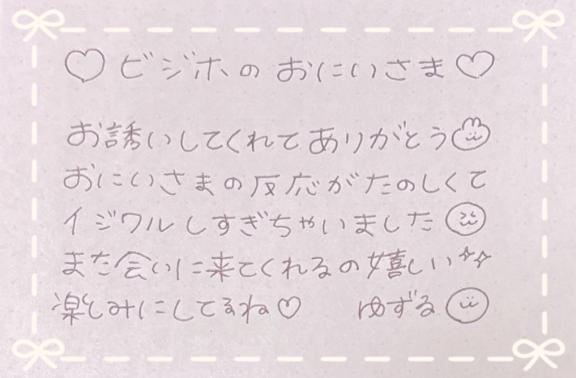 ♡ビジホのおにいさま♡
お誘いしてくれてありがとう
おにいさまの反応がたのしくて
イジワルしすぎちゃいました
また会いに来てくれるの嬉しい✨
楽しみにしてるね♡ ゆずる